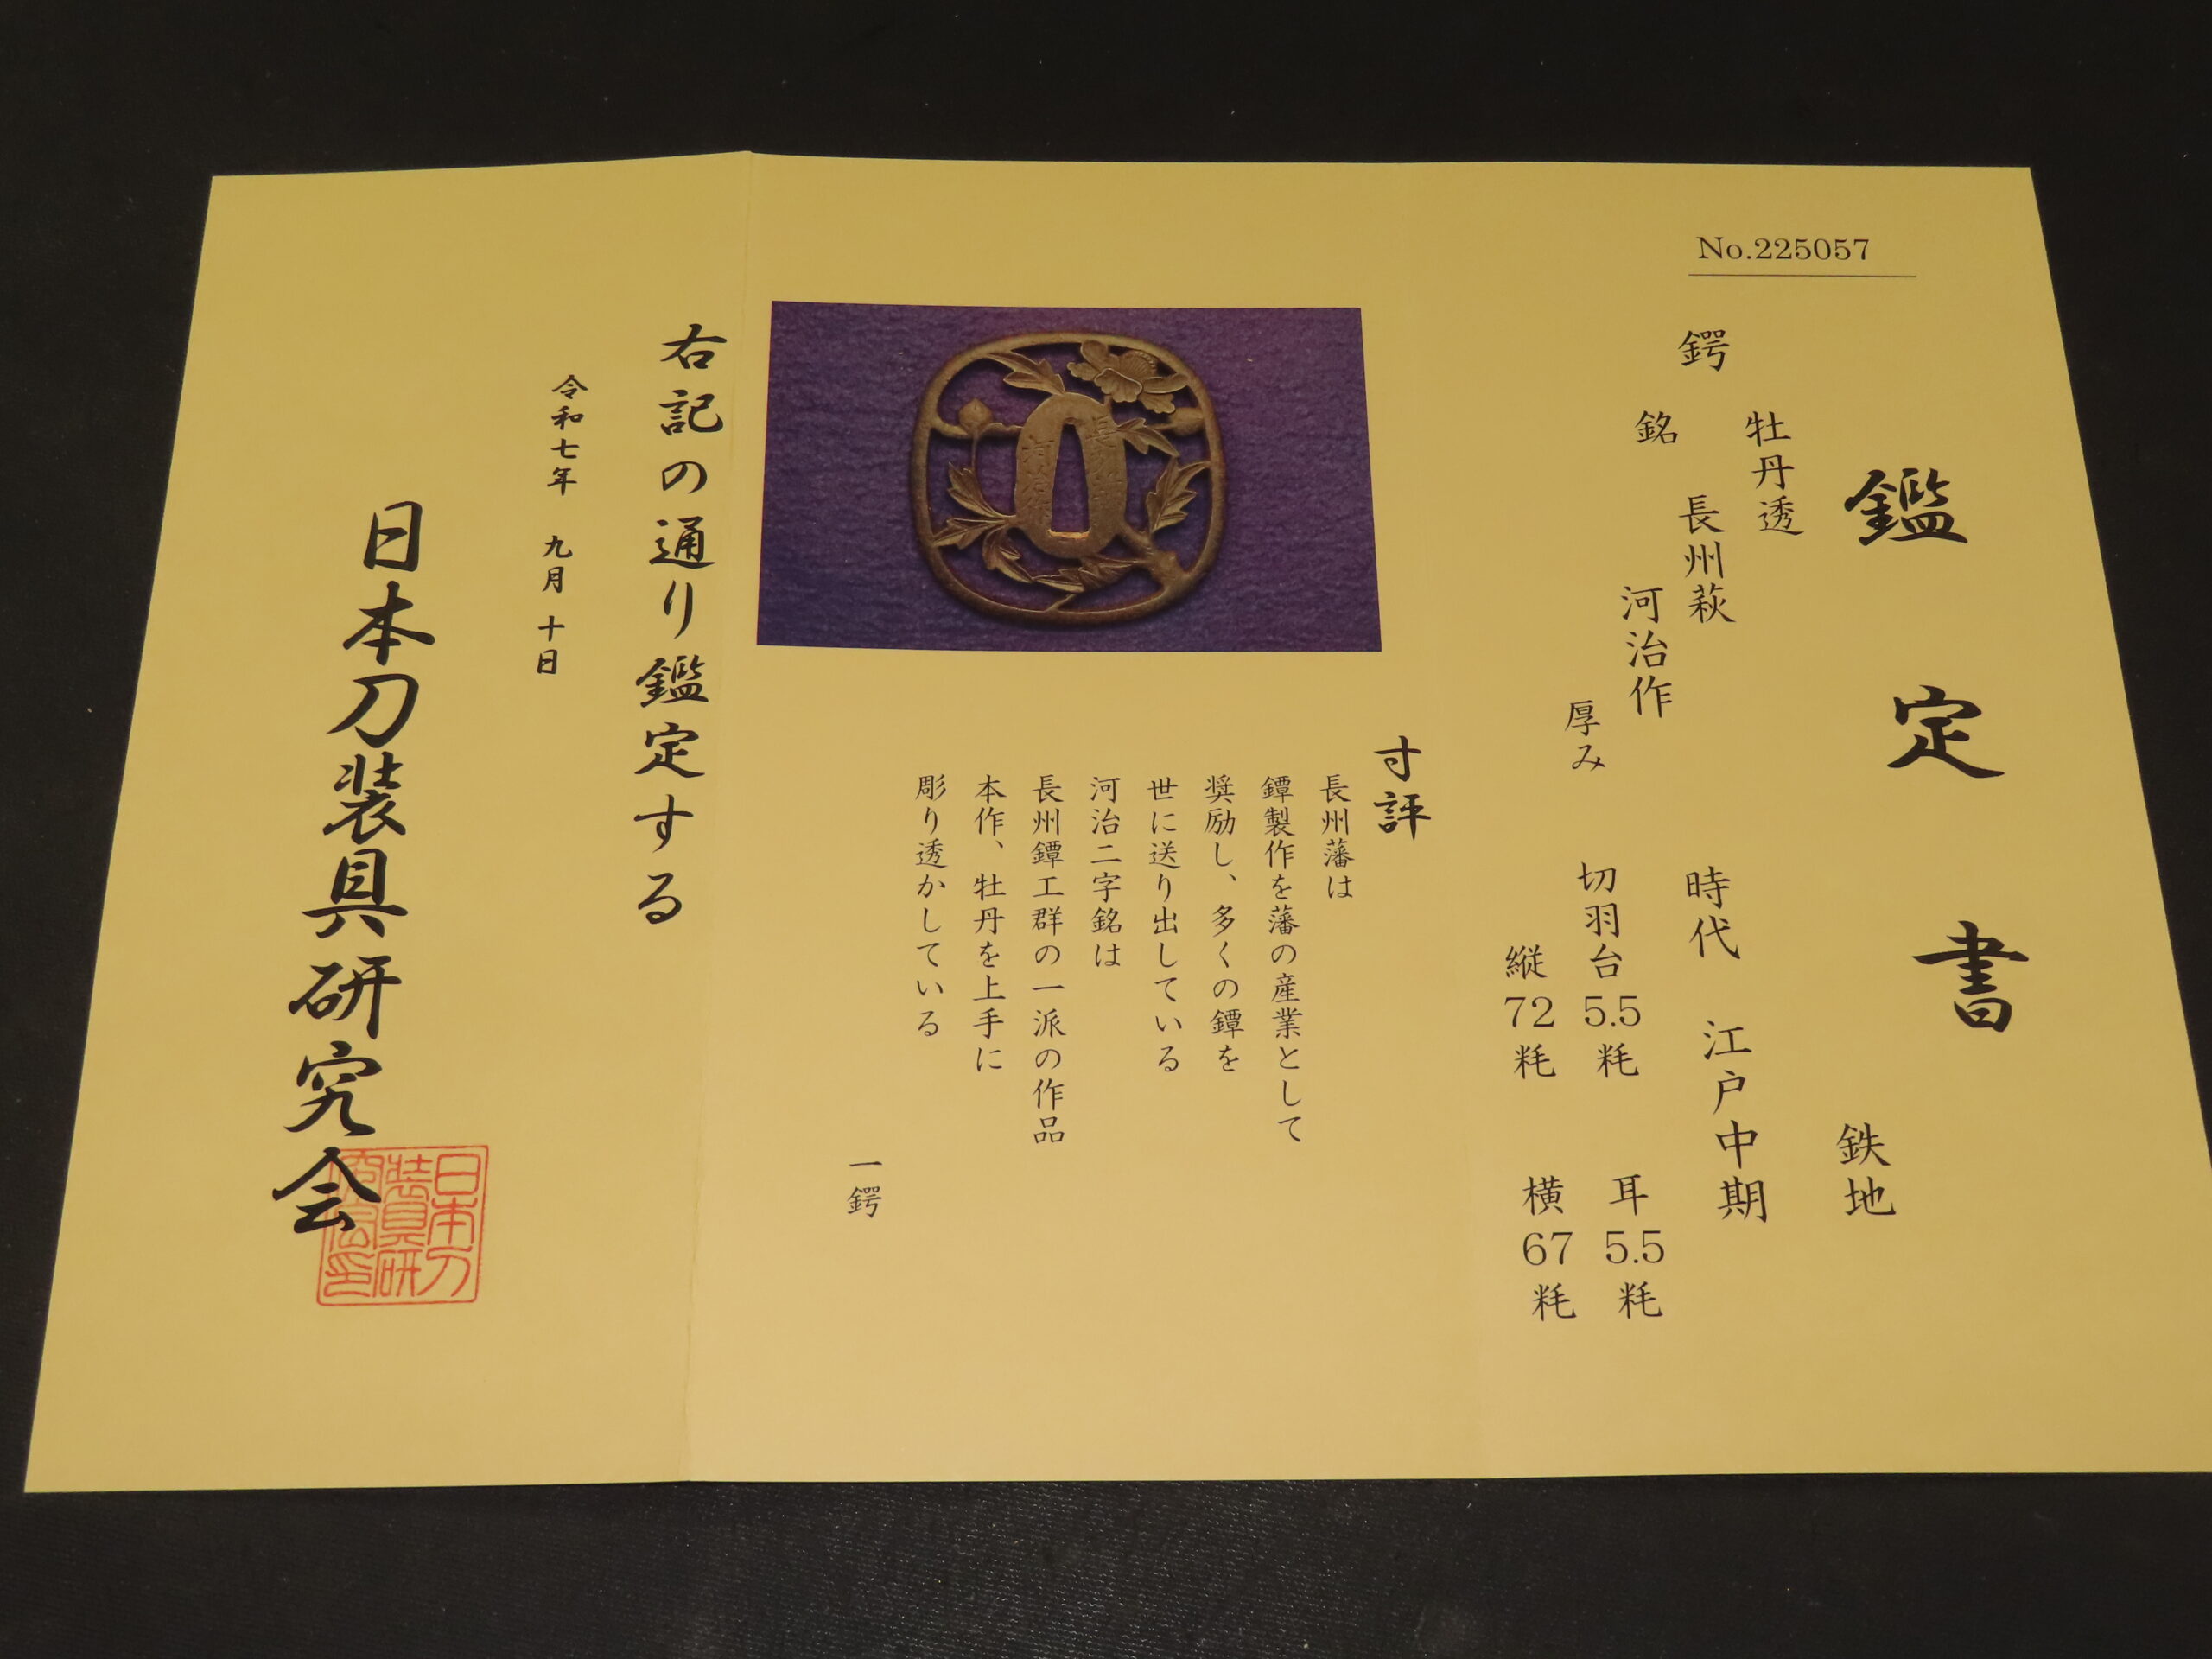 No.225057
鑑定書
牡丹透 鉄地
鍔
長州萩
銘
河治作
時代 江戸中期
厚み 切羽台 5.5 粍 耳 5.5 粍
縦 72 粍 横 67 粍
寸評
長州藩は
鐔製作を藩の産業として
奨励し、多くの鐔を
世に送り出している
河治二字銘は
長州鐔工群の一派の作品
本作、牡丹を上手に
彫り透かしている
一鍔
右記の通り鑑定する
令和七年 九月 十日
日本刀装具研究会
日本刀
装具研
究会印